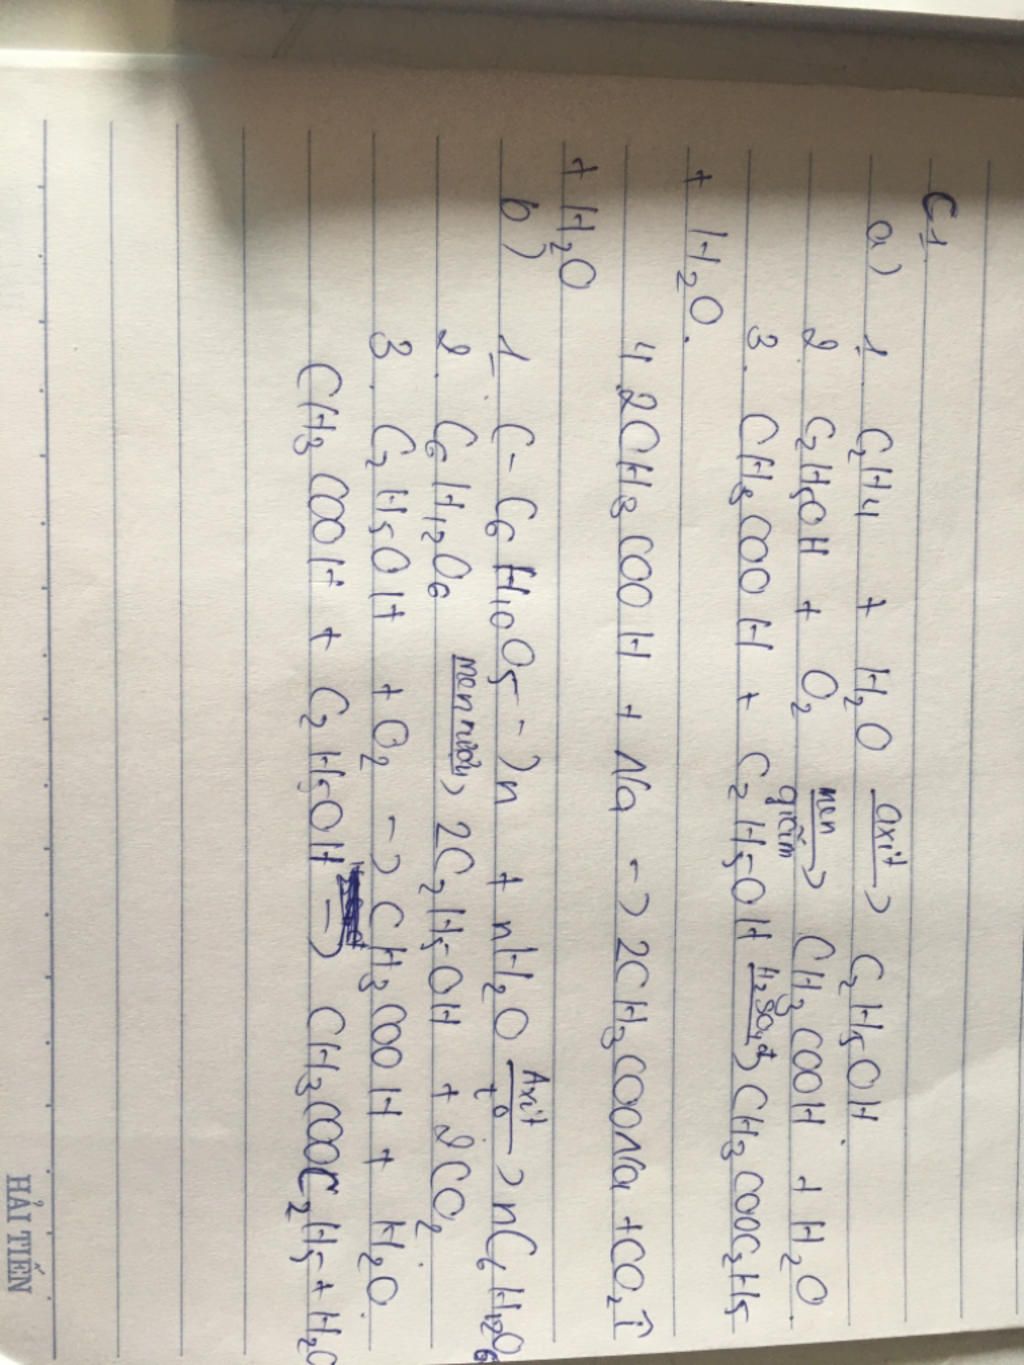 C1
a) 1 C₂H4 + H₂O axit→ C₂H5OH.
2 C₂H5OH + O₂ men giấm→ CH₃COOH + H₂O.
3. CH₃COOH + C₂H5OH H₂SO₄đ→ CH₃COOC₂H5
+ H₂O.
4. 2CH₃COOH + Na -> 2CH₃COONa + CO₂↑
+ H₂O
b) 1 (-C₆H₁₀O₅-)n + nH₂O Axit t⁰→ nC₆H₁₂O₆
2. C₆H₁₂O₆ men rượu→ 2C₂H₅OH + 2CO₂
3. C₂H₅OH + O₂ -> CH₃COOH + H₂O.
CH₃COOH + C₂H₅OH -> CH₃COOC₂H₅ + H₂O
HẢI TIẾN